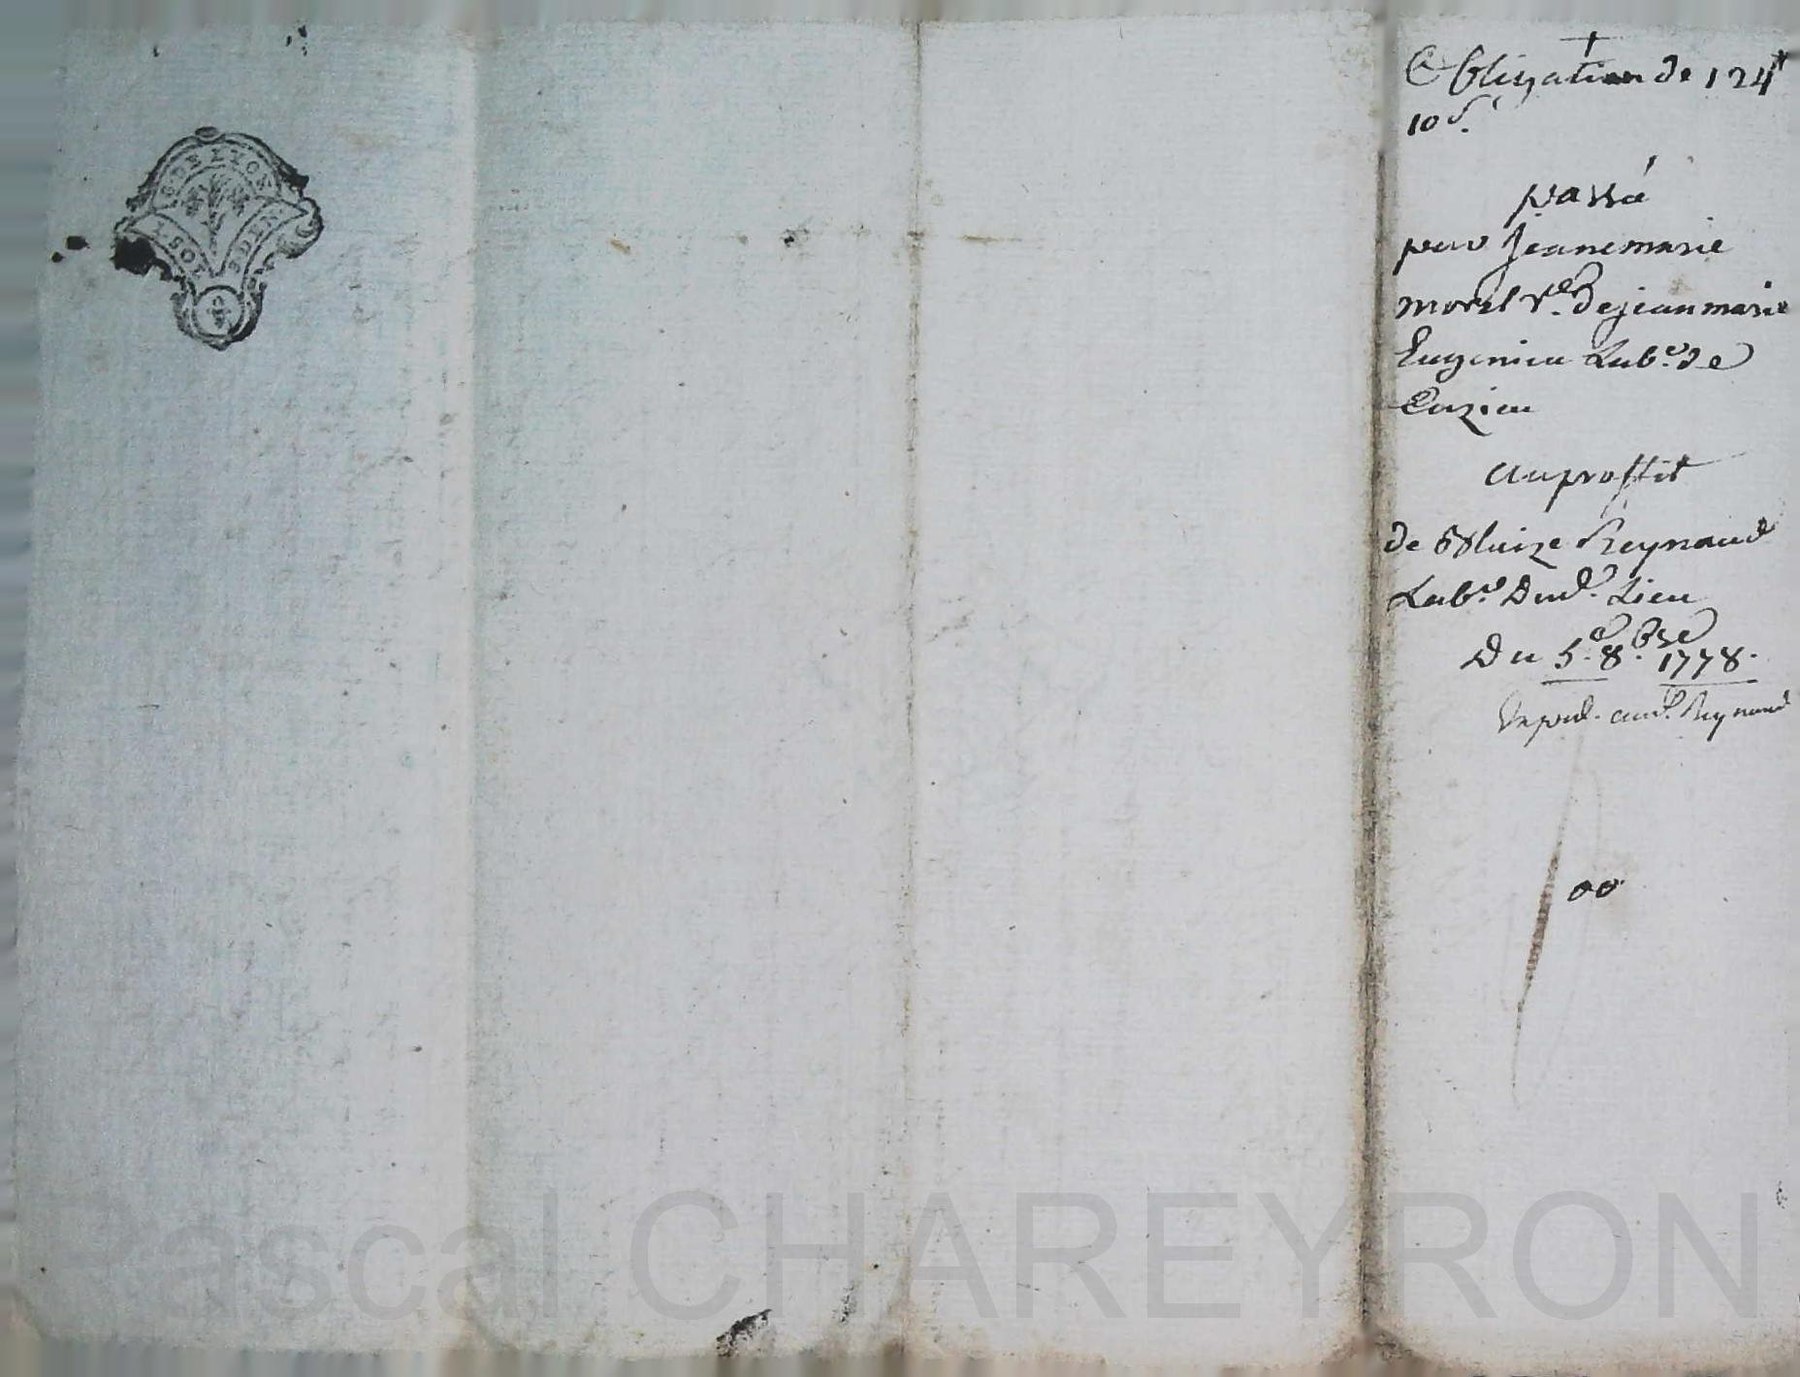 G DE LYON
1 SOL 8 DEN
Obligation de 124ᵗᵗ
10 s.
passé
par Jeanemarie
morel vᵉ. de jean marie
Eugenieu Labʳ. de
Curzieu
au proffit
de Bluize Reynaud
Labʳ. Dud. Lieu
Du 5.ᵉ 8.ᵇʳᵉ 1778.
aud. Reynaud
00
Pascal CHAREYRON